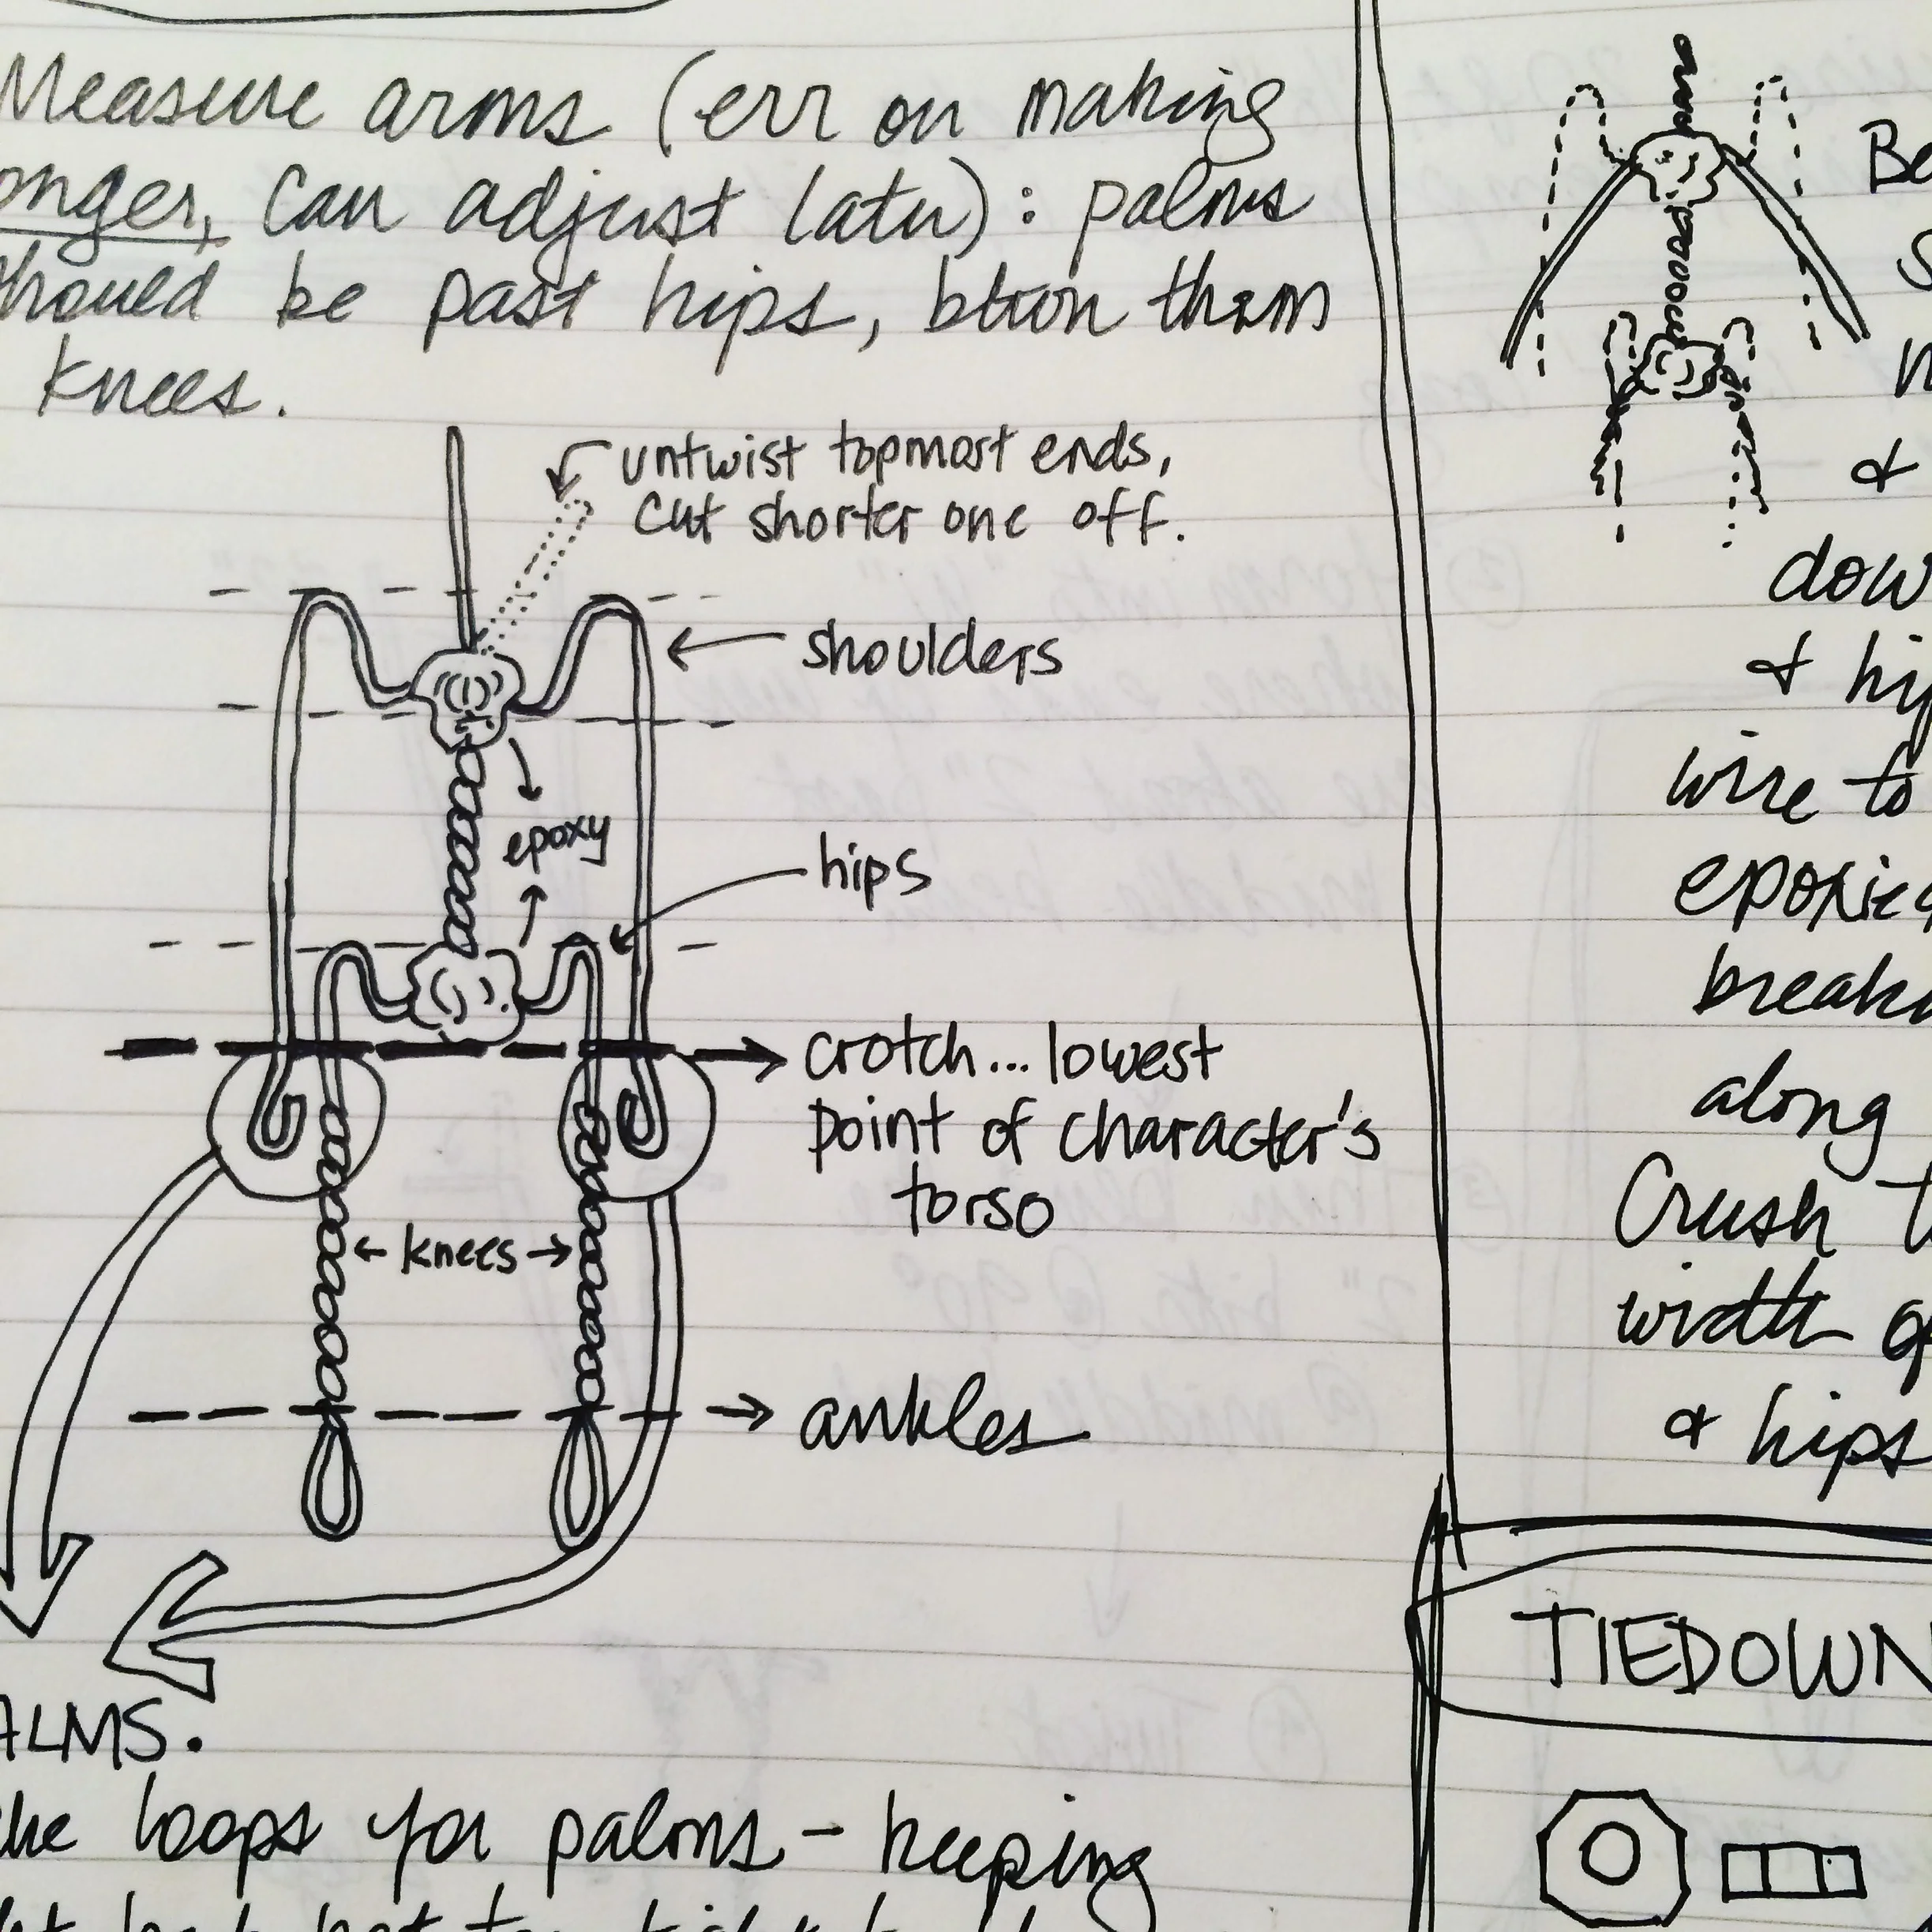 Measure arms (err on making
onger, can adjust later): palms
should be past hips, btwn them
knees.
untwist topmost ends,
cut shorter one off.
shoulders
epoxy
hips
crotch... lowest
point of character's
torso
← knees →
ankles
ALMS.
ke loops for palms - keeping
Be
S
&
dow
& hip
wire to
epoxied
break
along
Crush t
width of
& hips
TIEDOWN